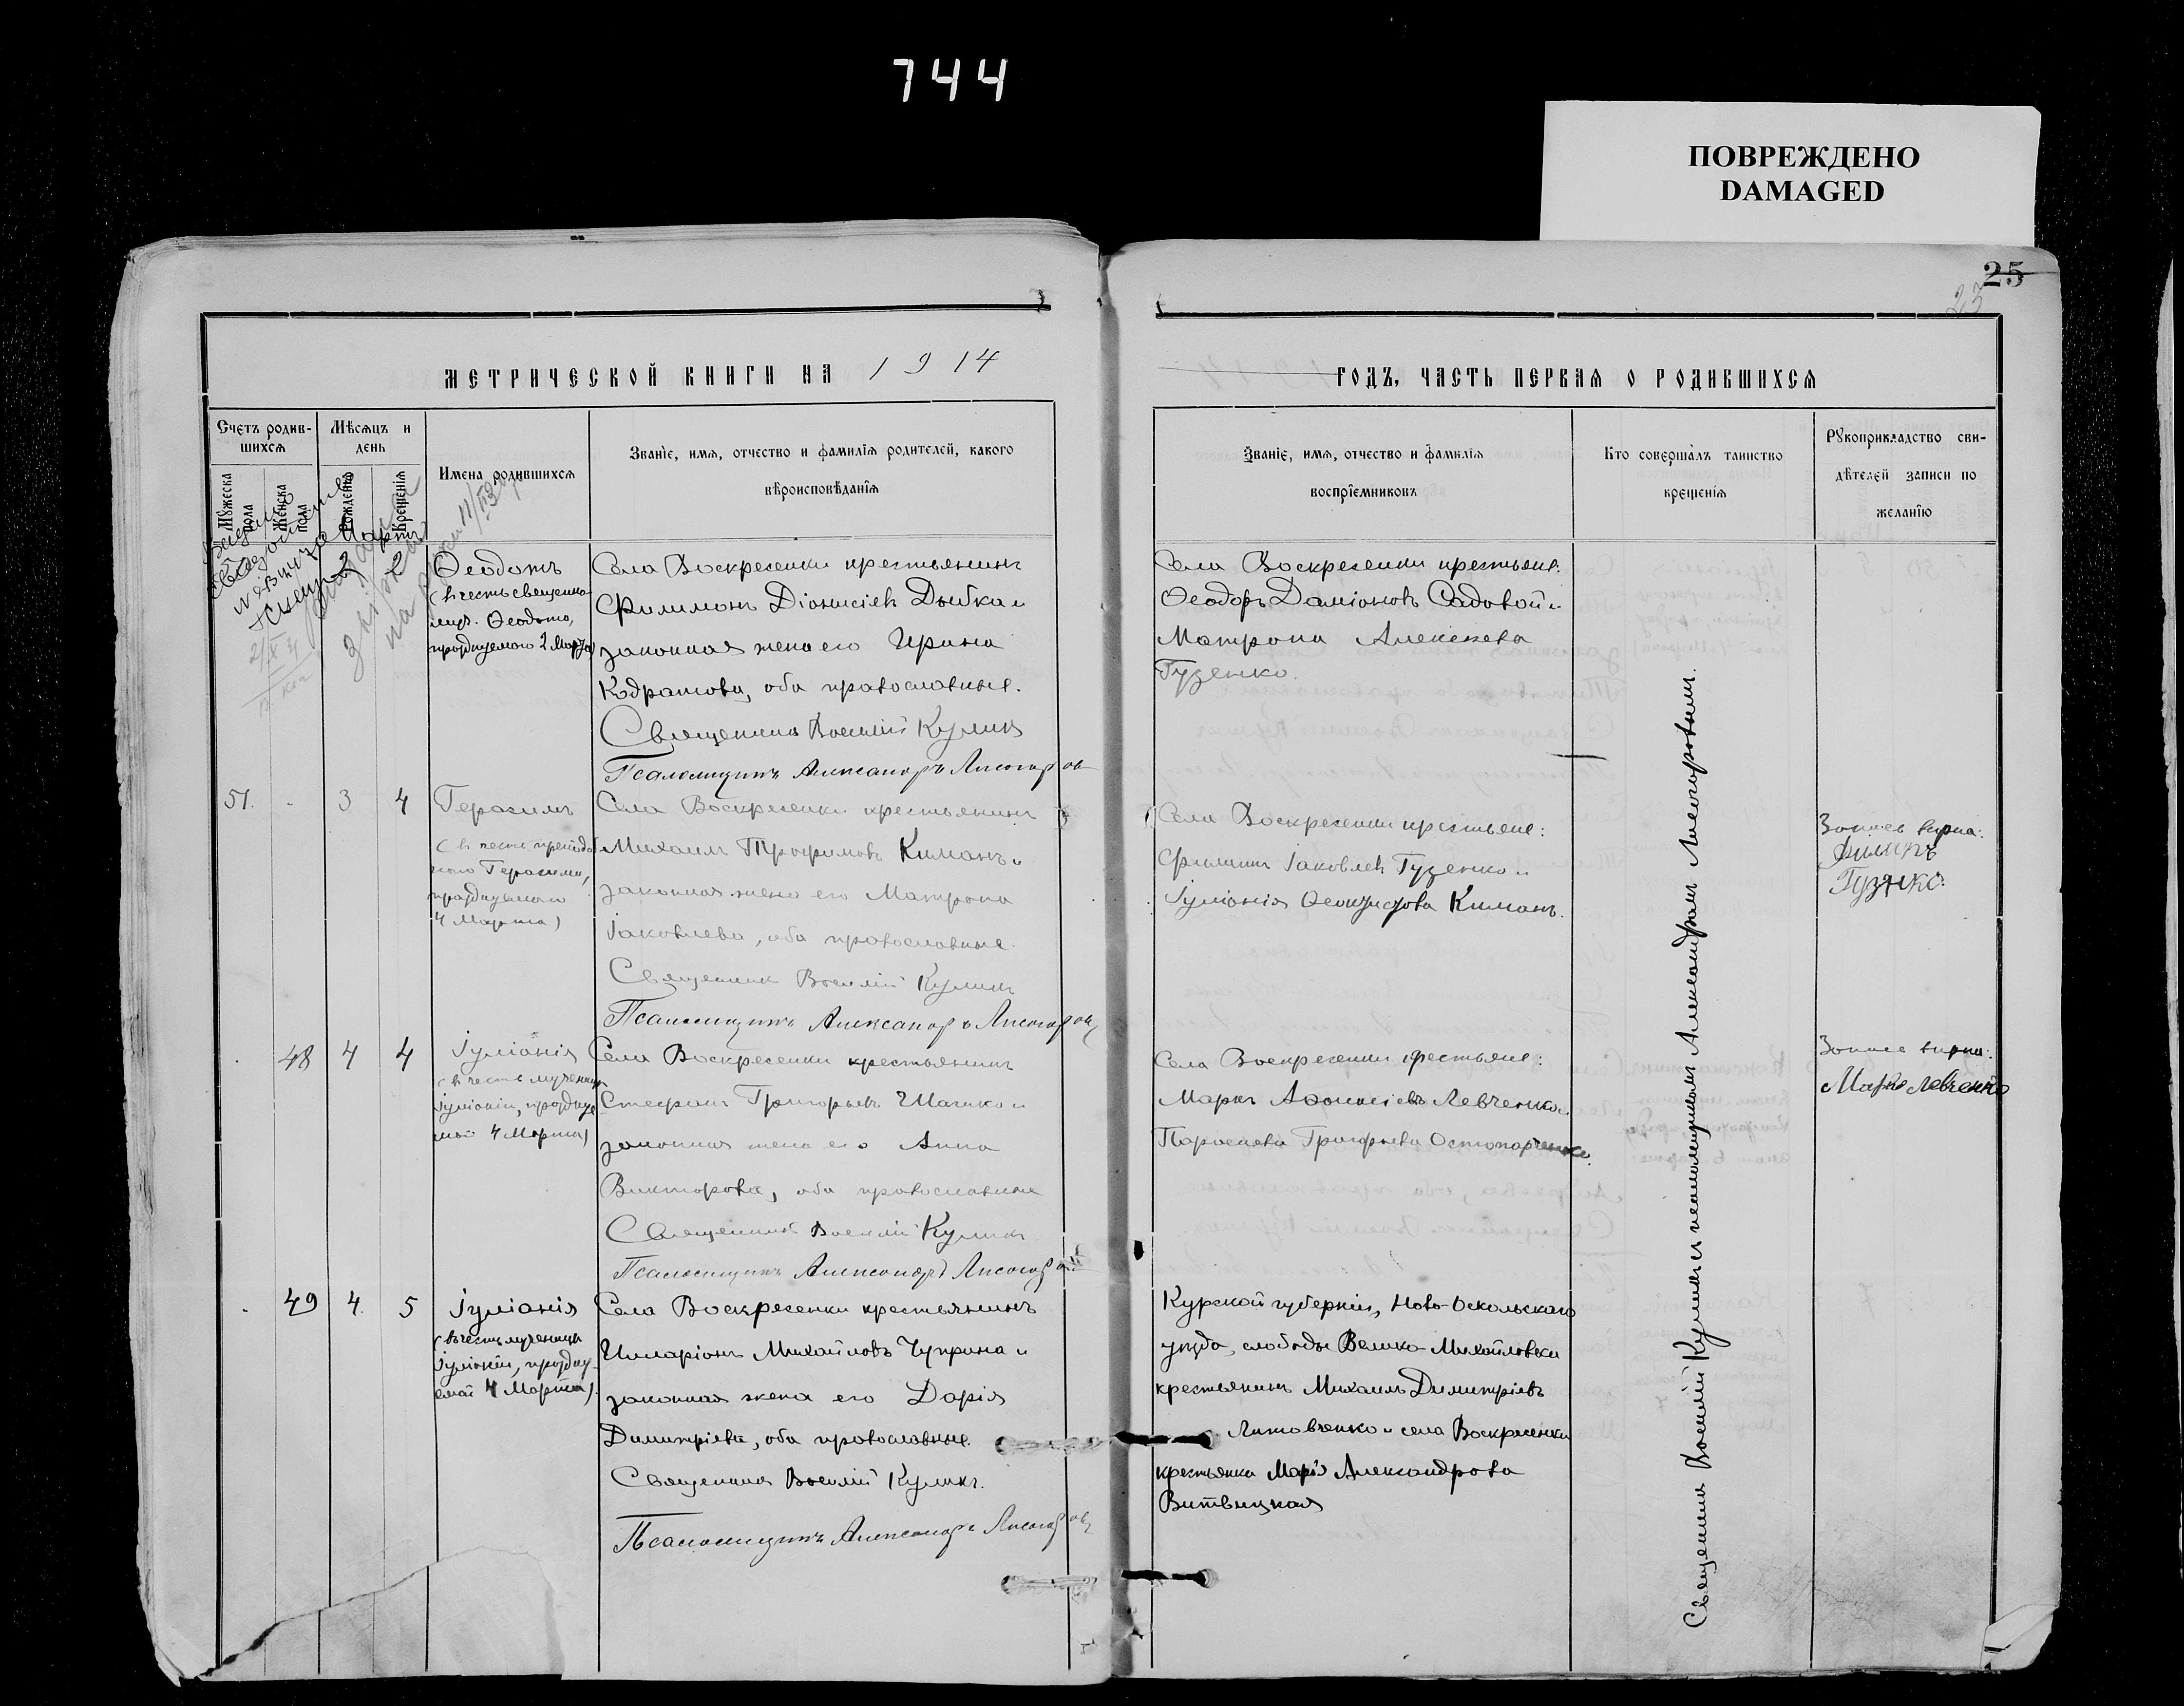 744
ПОВРЕЖДЕНО
DAMAGED
25
23
МЕТРИЧЕСКОЙ КНИГИ НА 1914
ГОДЪ, ЧАСТЬ ПЕРВАЯ О РОДИВШИХСЯ
Счетъ родив-
шихся
Мужеска
пола
Женска
пола
Мѣсяцъ и
день
Рожденія
Крещенія
Имена родившихся
Званіе, имя, отчество и фамилія родителей, какого
вѣроисповѣданія
Званіе, имя, отчество и фамилія
воспріемниковъ
Кто совершалъ таинство
крещенія
Рукоприкладство сви-
дѣтелей записи по
желанію
Мартъ
2 2
Ѳеодотъ
(въ честь священно-
муч. Ѳеодота,
празднуемаго 2 Марта)
Села Воскресенки крестьянинъ
Филимонъ Діонисіевъ Дыбка и
законная жена его Ирина
Кодратова, оба православные.
Священникъ Василій Куликъ
Псаломщикъ Александръ Лисогоровъ
Села Воскресенки крестьяне:
Ѳеодоръ Даміановъ Садовой и
Матрона Алексѣева
Гузенко.
51. - 3 4
Герасимъ
(въ честь преподоб
наго Герасима,
празднуемаго
4 Марта)
Села Воскресенки крестьянинъ
Михаилъ Трофимовъ Киманъ и
законная жена его Матрона
Іаковлева, оба православные.
Священникъ Василій Куликъ
Псаломщикъ Александръ Лисогоровъ
Села Воскресенки крестьяне:
Филиппъ Іаковлевъ Гузенко и
Іуліанія Ѳеоктистова Киманъ.
Запись вѣрна:
Филипъ
Гузенко.
. 48 4 4
Іуліанія
(въ честь мученицы
Іуліаніи, праздну
емой 4 Марта)
Села Воскресенки крестьянинъ
Стефанъ Григорьевъ Шашко и
законная жена его Анна
Викторова, оба православные
Священникъ Василій Куликъ
Псаломщикъ Александръ Лисогоровъ
Села Воскресенки крестьяне:
Маркъ Аѳонасіевъ Левченко и
Параскева Григорьева Остопорченко.
Запись вѣрна:
Марко Левченко
. 49 4. 5
Іуліанія
(въ честь мученицы
Іуліаніи, праздну-
емой 4 Марта).
Села Воскресенки крестьянинъ
Илларіонъ Михайловъ Чуприна и
законная жена его Дарія
Димитріева, оба православные.
Священникъ Василій Куликъ.
Псаломщикъ Александръ Лисогоровъ
Курской губерніи, Ново-Оскольскаго
уѣзда, слободы Велико-Михайловки
крестьянинъ Михаилъ Димитріевъ
Литовченко и села Воскресенки
крестьянка Марія Александрова
Витвицкая
Священникъ Василій Куликъ съ псаломщикомъ Александромъ Лисогоровымъ.